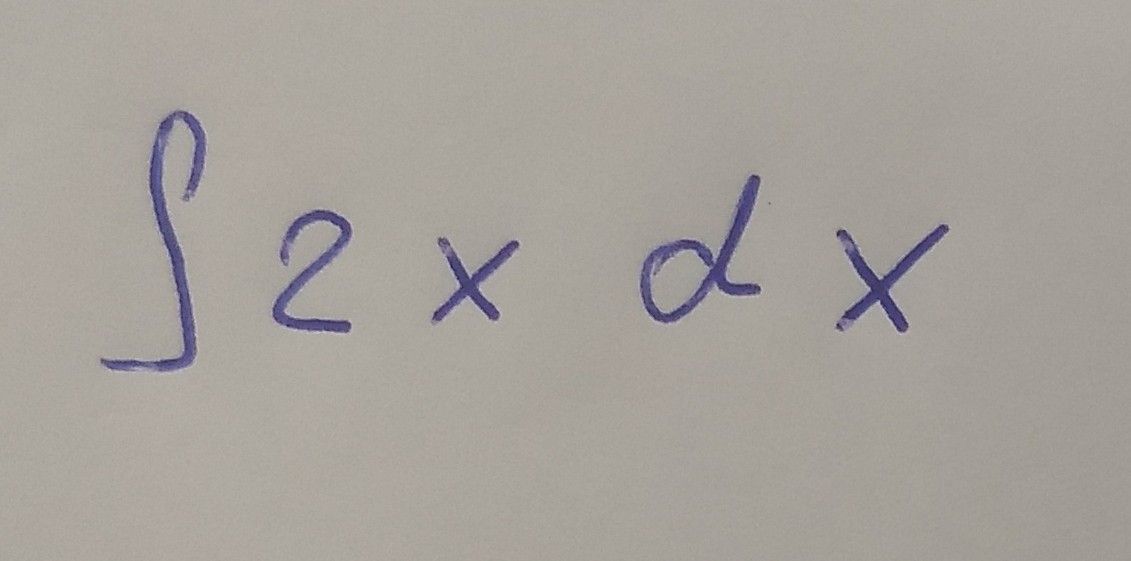 ∫ 2x dx